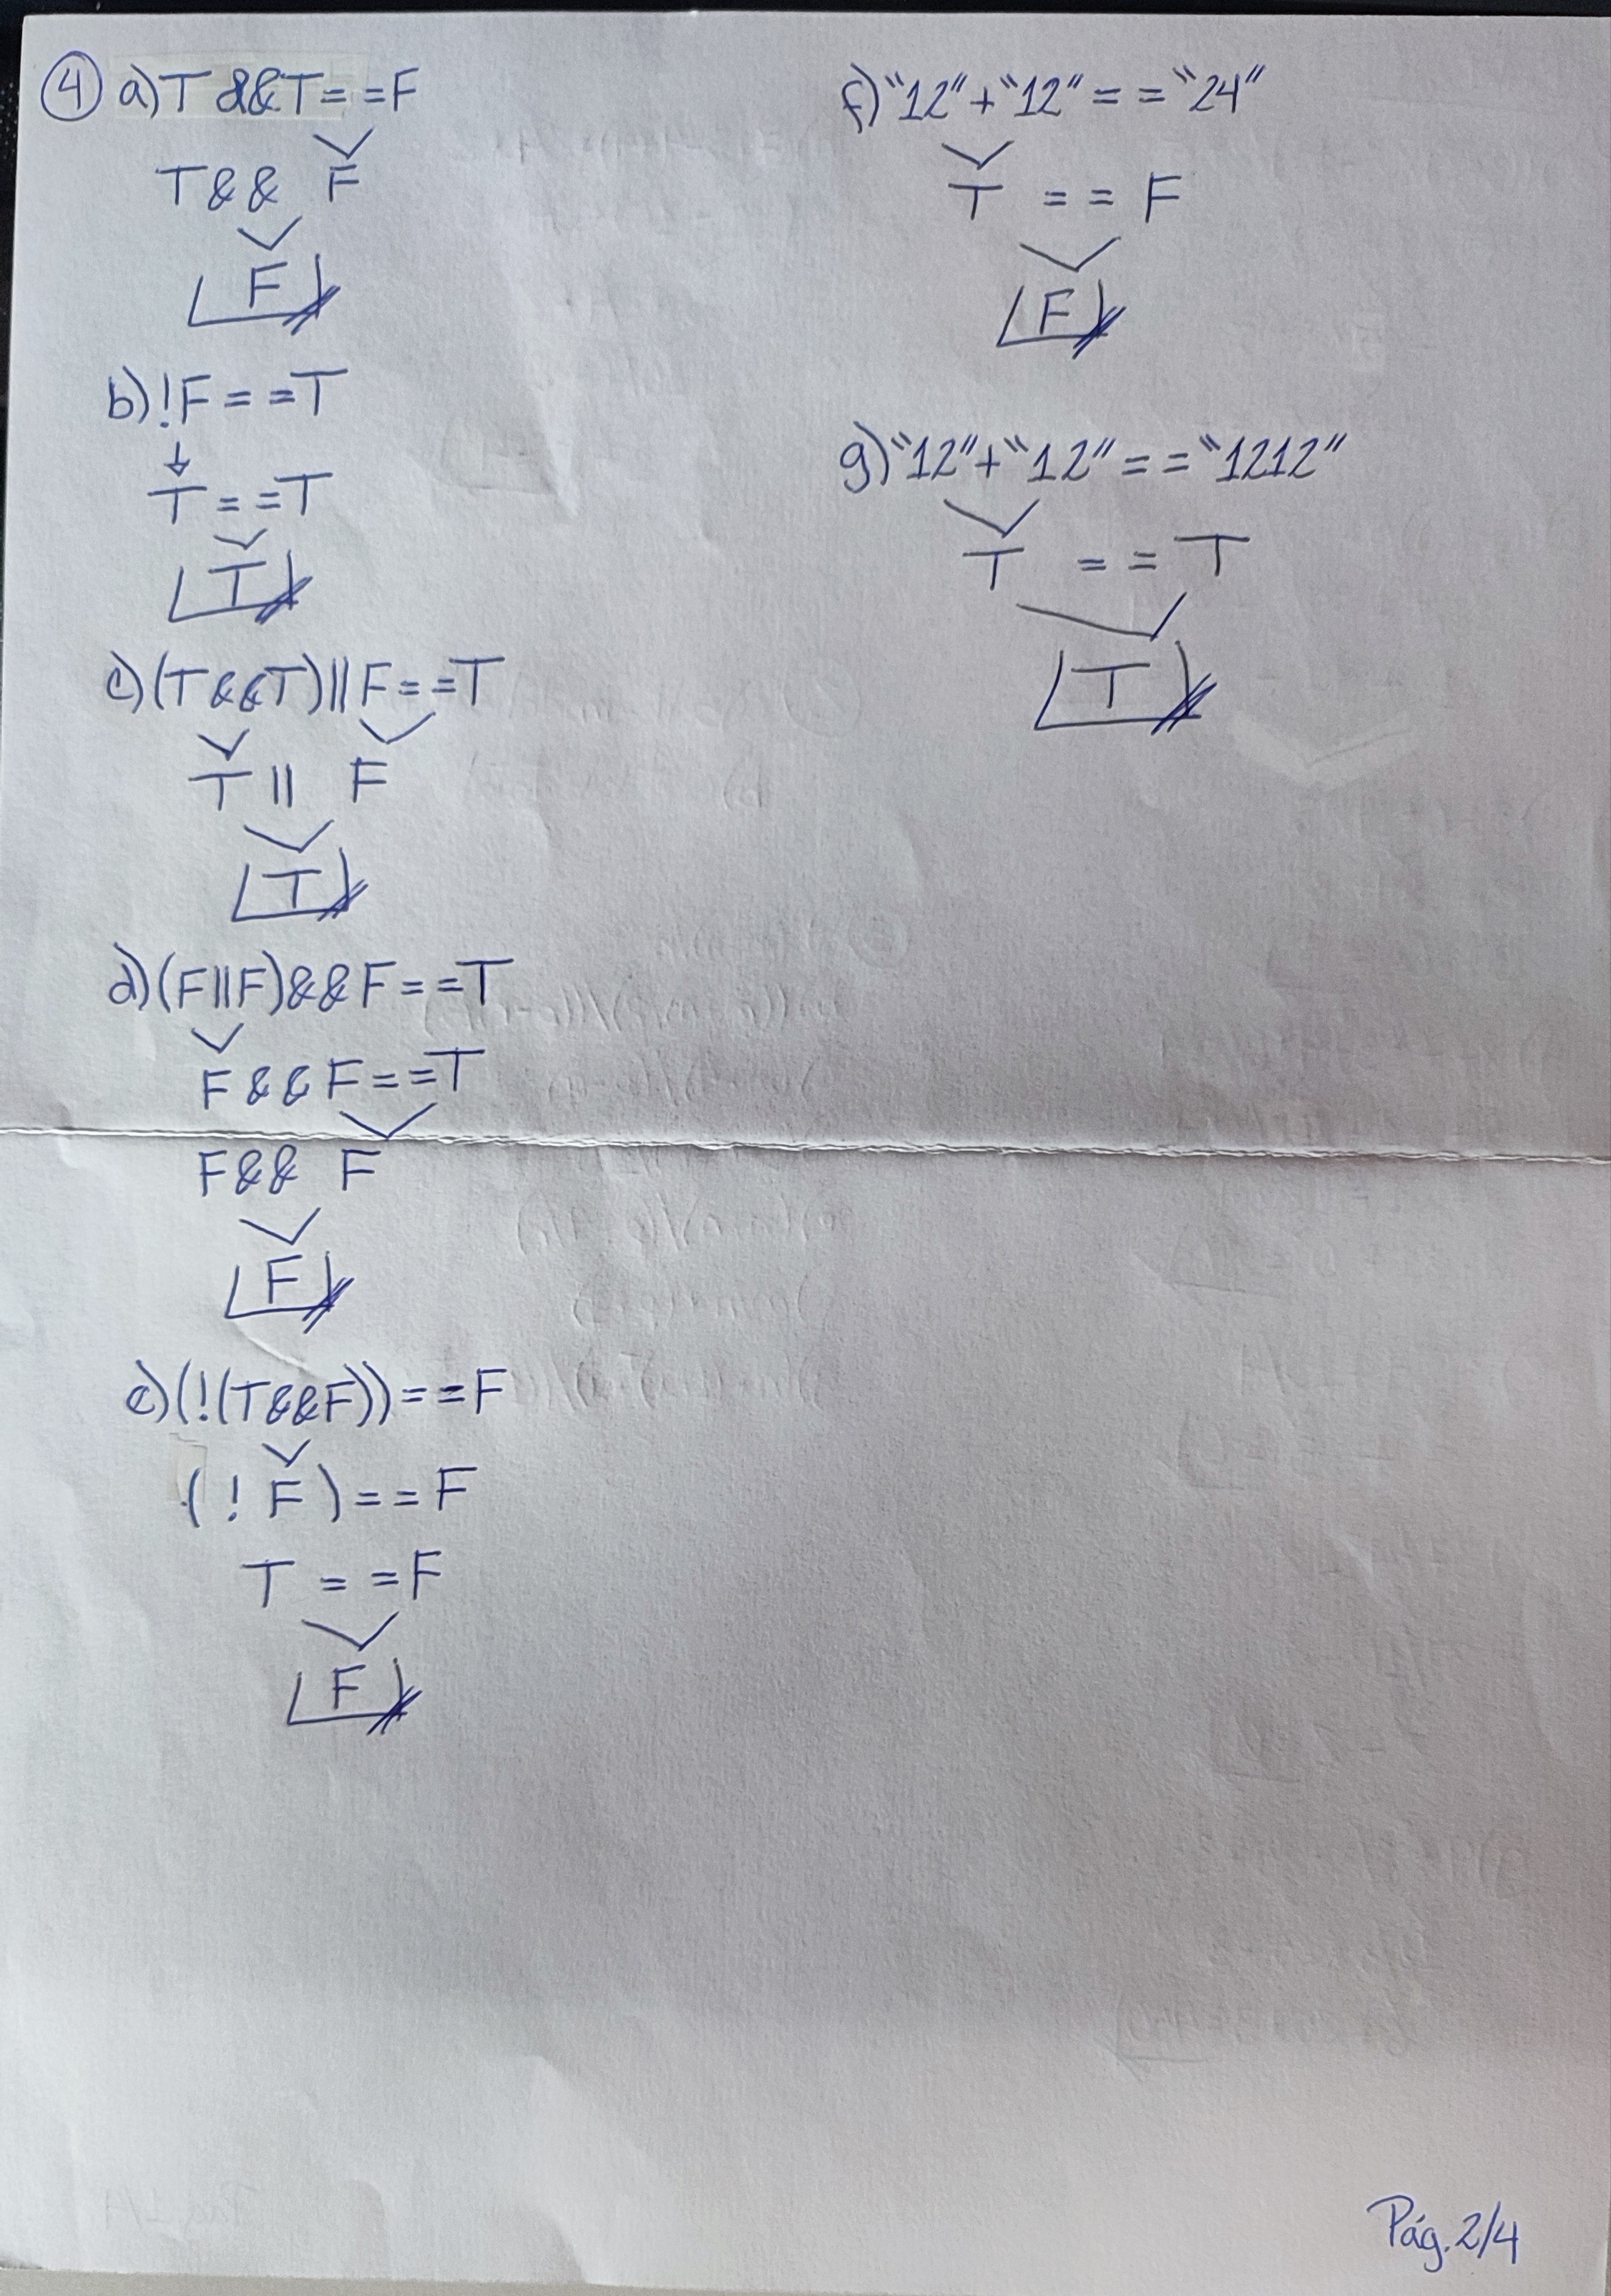 4 a) T && T = = F
T && F
F
b) !F = = T
T = = T
T
c) (T && T) || F = = T
T || F
T
d) (F || F) && F = = T
F && F = = T
F && F
F
e) (!(T && F)) = = F
(! F) = = F
T = = F
F
f) "12" + "12" = = "24"
T = = F
F
g) "12" + "12" = = "1212"
T = = T
T
Pág. 2/4